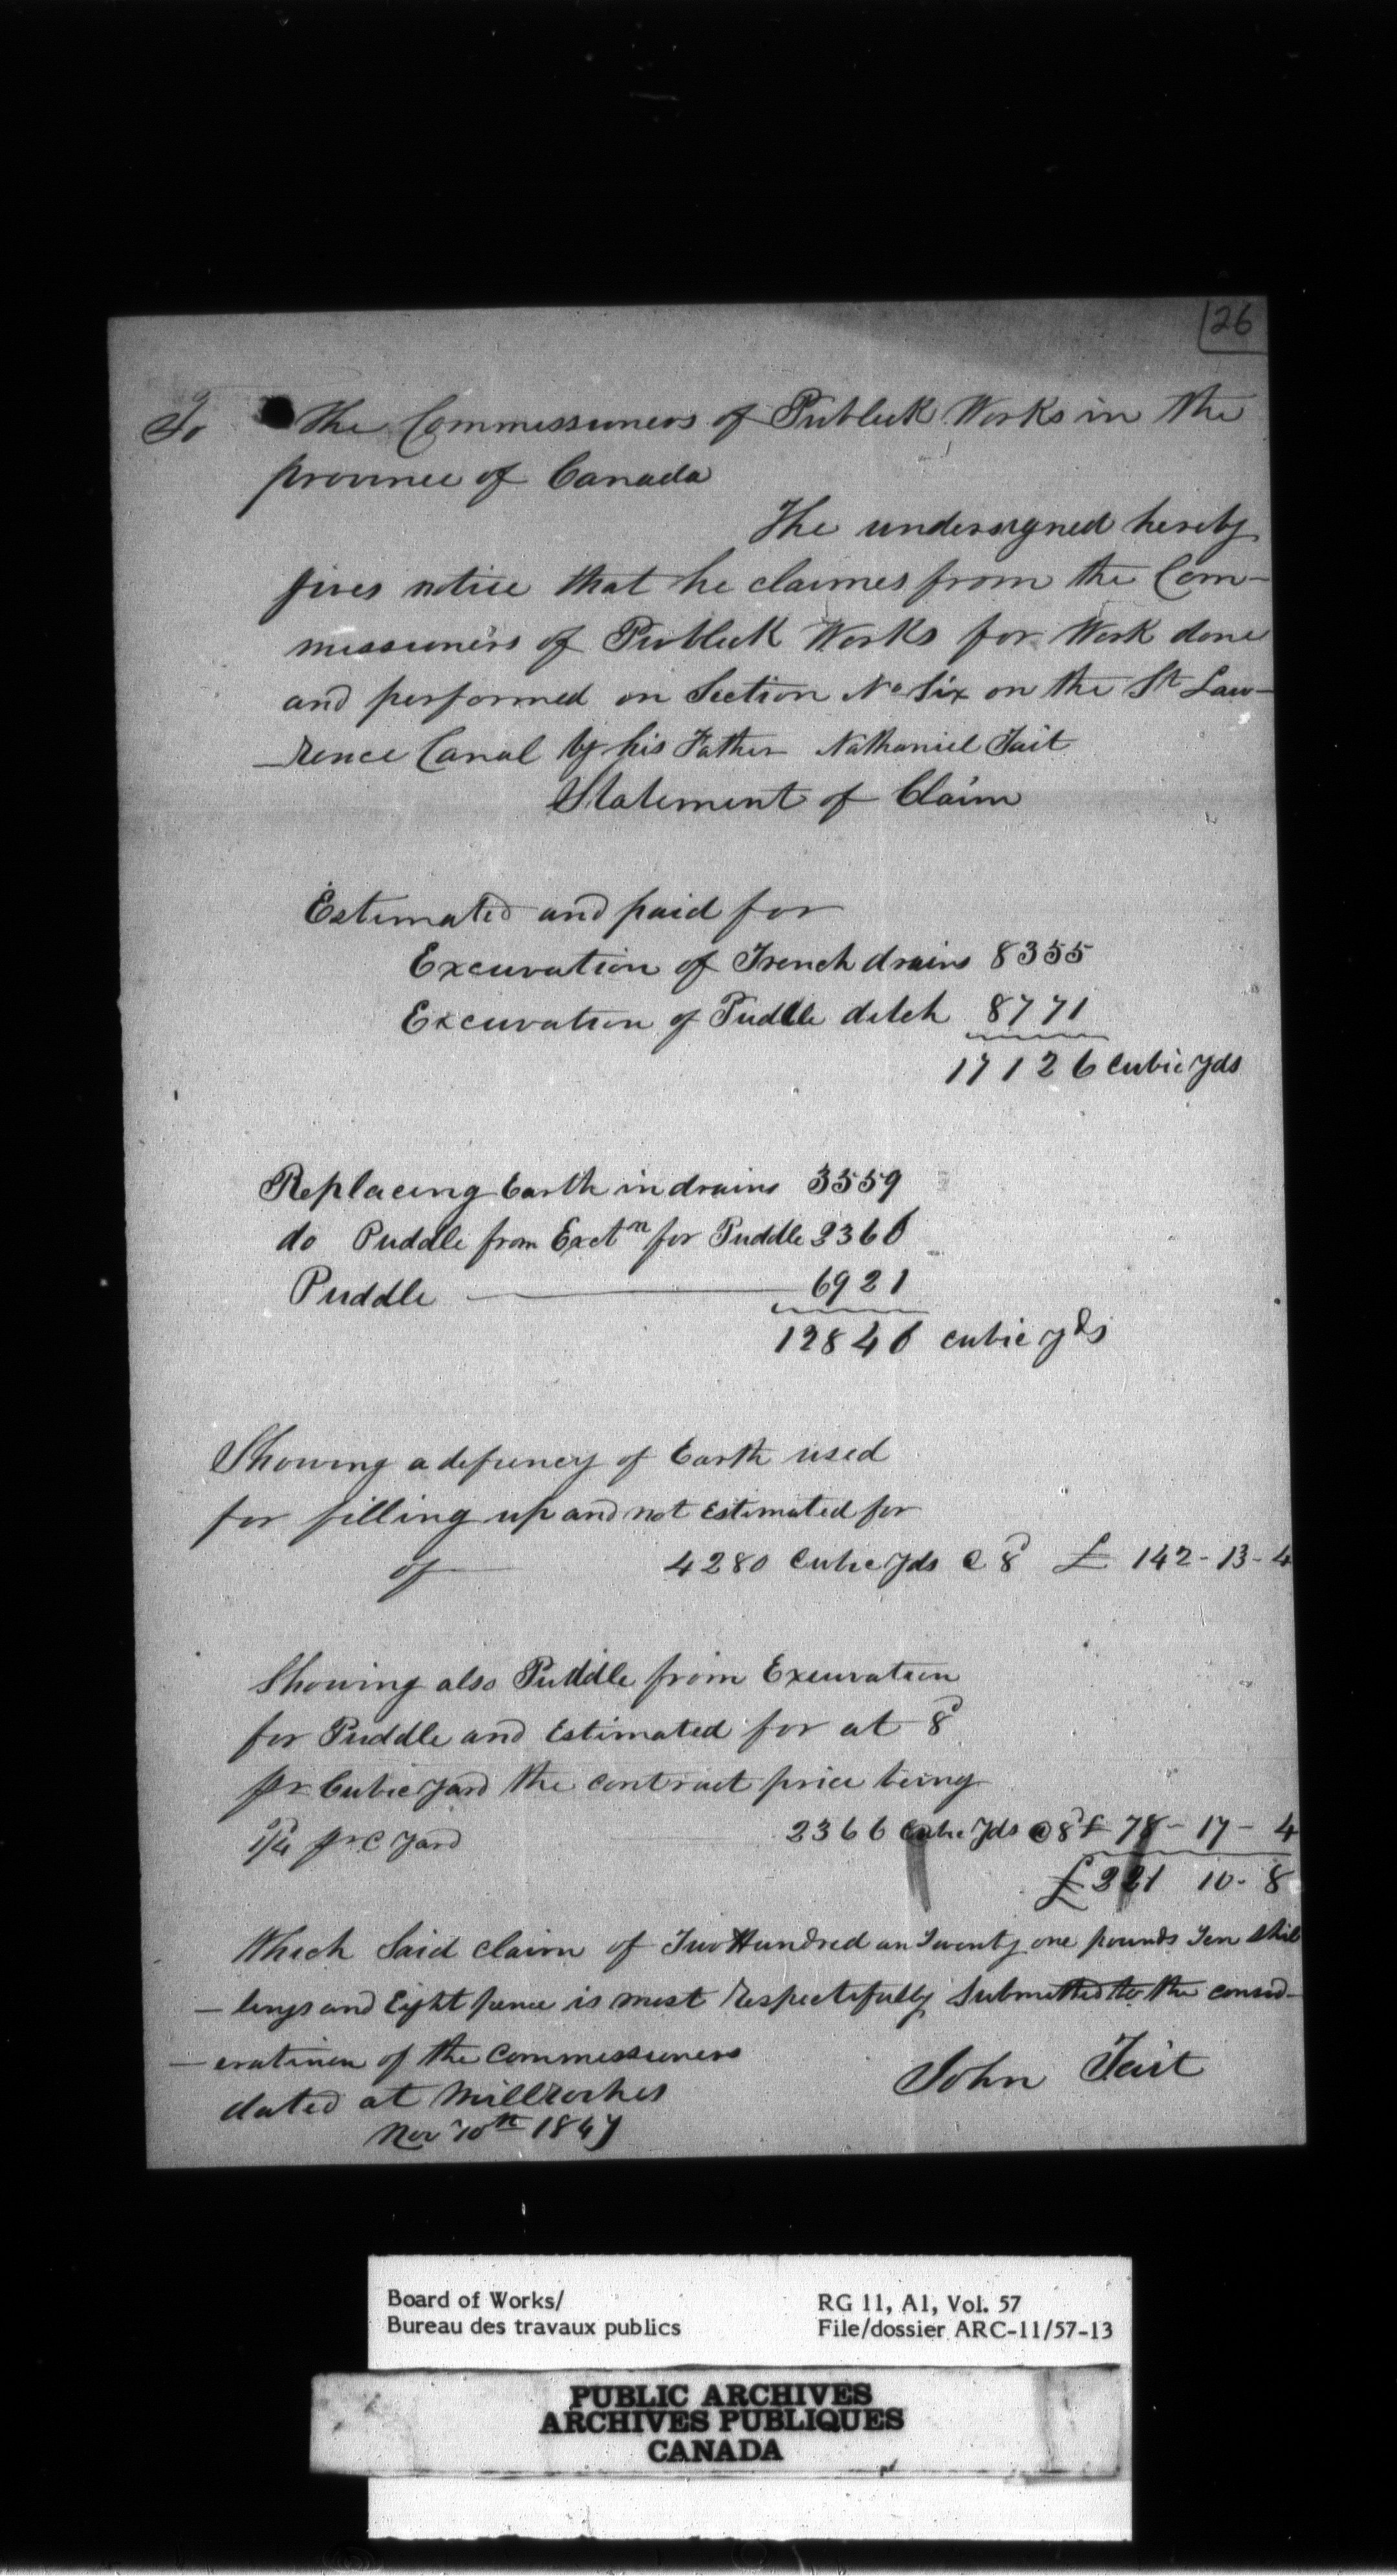 26
To The Commissioners of Publick Works in the
province of Canada
The undersigned hereby
gives notice that he claimes from the Com-
missioners of Publick Works for Work done
and performed on Section No Six on the St Law-
-rence Canal by his Father Nathaniel Tait
Statement of Claim
Estimated and paid for
Excuvation of Trench drains 8355
Excuvation of Puddle ditch 8771
17126 Cubic Yds
Replacing Earth in drains 3559
do Puddle from Exctn for Puddle 2366
Puddle 6921
12846 cubic yds
Showing a defiency of Earth used
for filling up and not Estimated for
of 4280 Cubic Yds @ 8d £ 142-13-4
Showing also Puddle from Excuvation
for Puddle and Estimated for at 8d
pr Cubic Yard the contract price being
1/4 pr C Yard 2366 Cubic Yds @ 8d £ 78-17-4
£ 221 10-8
Which Said claim of Two Hundred an Twenty one pounds Ten Shil
-lings and Eight pence is most Respectifully Submitted to the consid-
-eratinon of the Commissioners
John Tait
dated at Millroches
Nov 10th 1847
Board of Works/
Bureau des travaux publics
RG 11, A1, Vol. 57
File/dossier ARC-11/57-13
PUBLIC ARCHIVES
ARCHIVES PUBLIQUES
CANADA